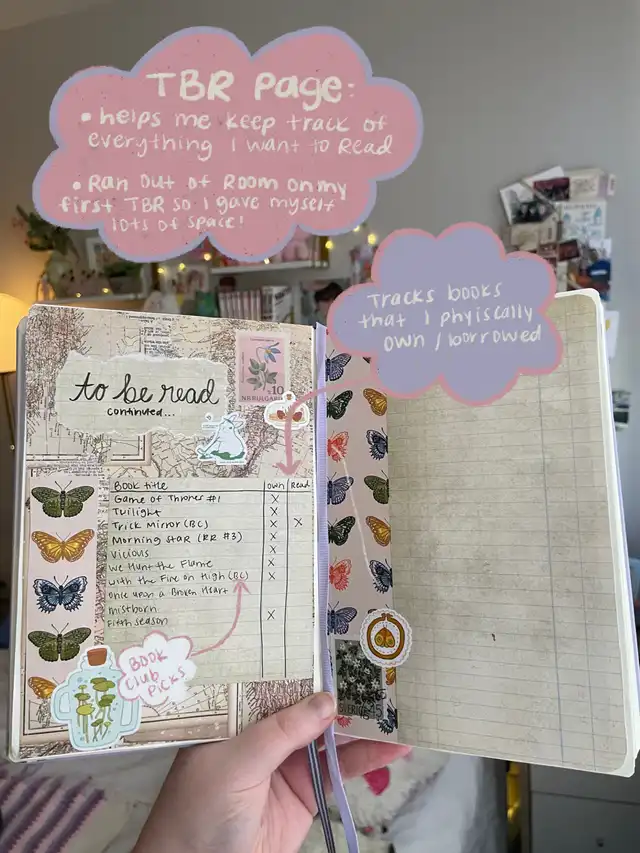 TBR Page:
• helps me keep track of
everything I want to Read
• Ran out of Room on my
first TBR so I gave myself
lots of space!
Tracks books
that I phyiscally
own / borrowed
to be read
continued...
10
NB BULGAR
Book title own Read
Game of Thrones #1 X
Twilight X
Trick Mirror (BC) X X
Morning Star (RR #3) X
Vicious X
We Hunt the Flame X
With the Fire on High (BC) X
Once Upon a Broken Heart
Mistborn
Fifth Season X
BOOK
Club
PICKS